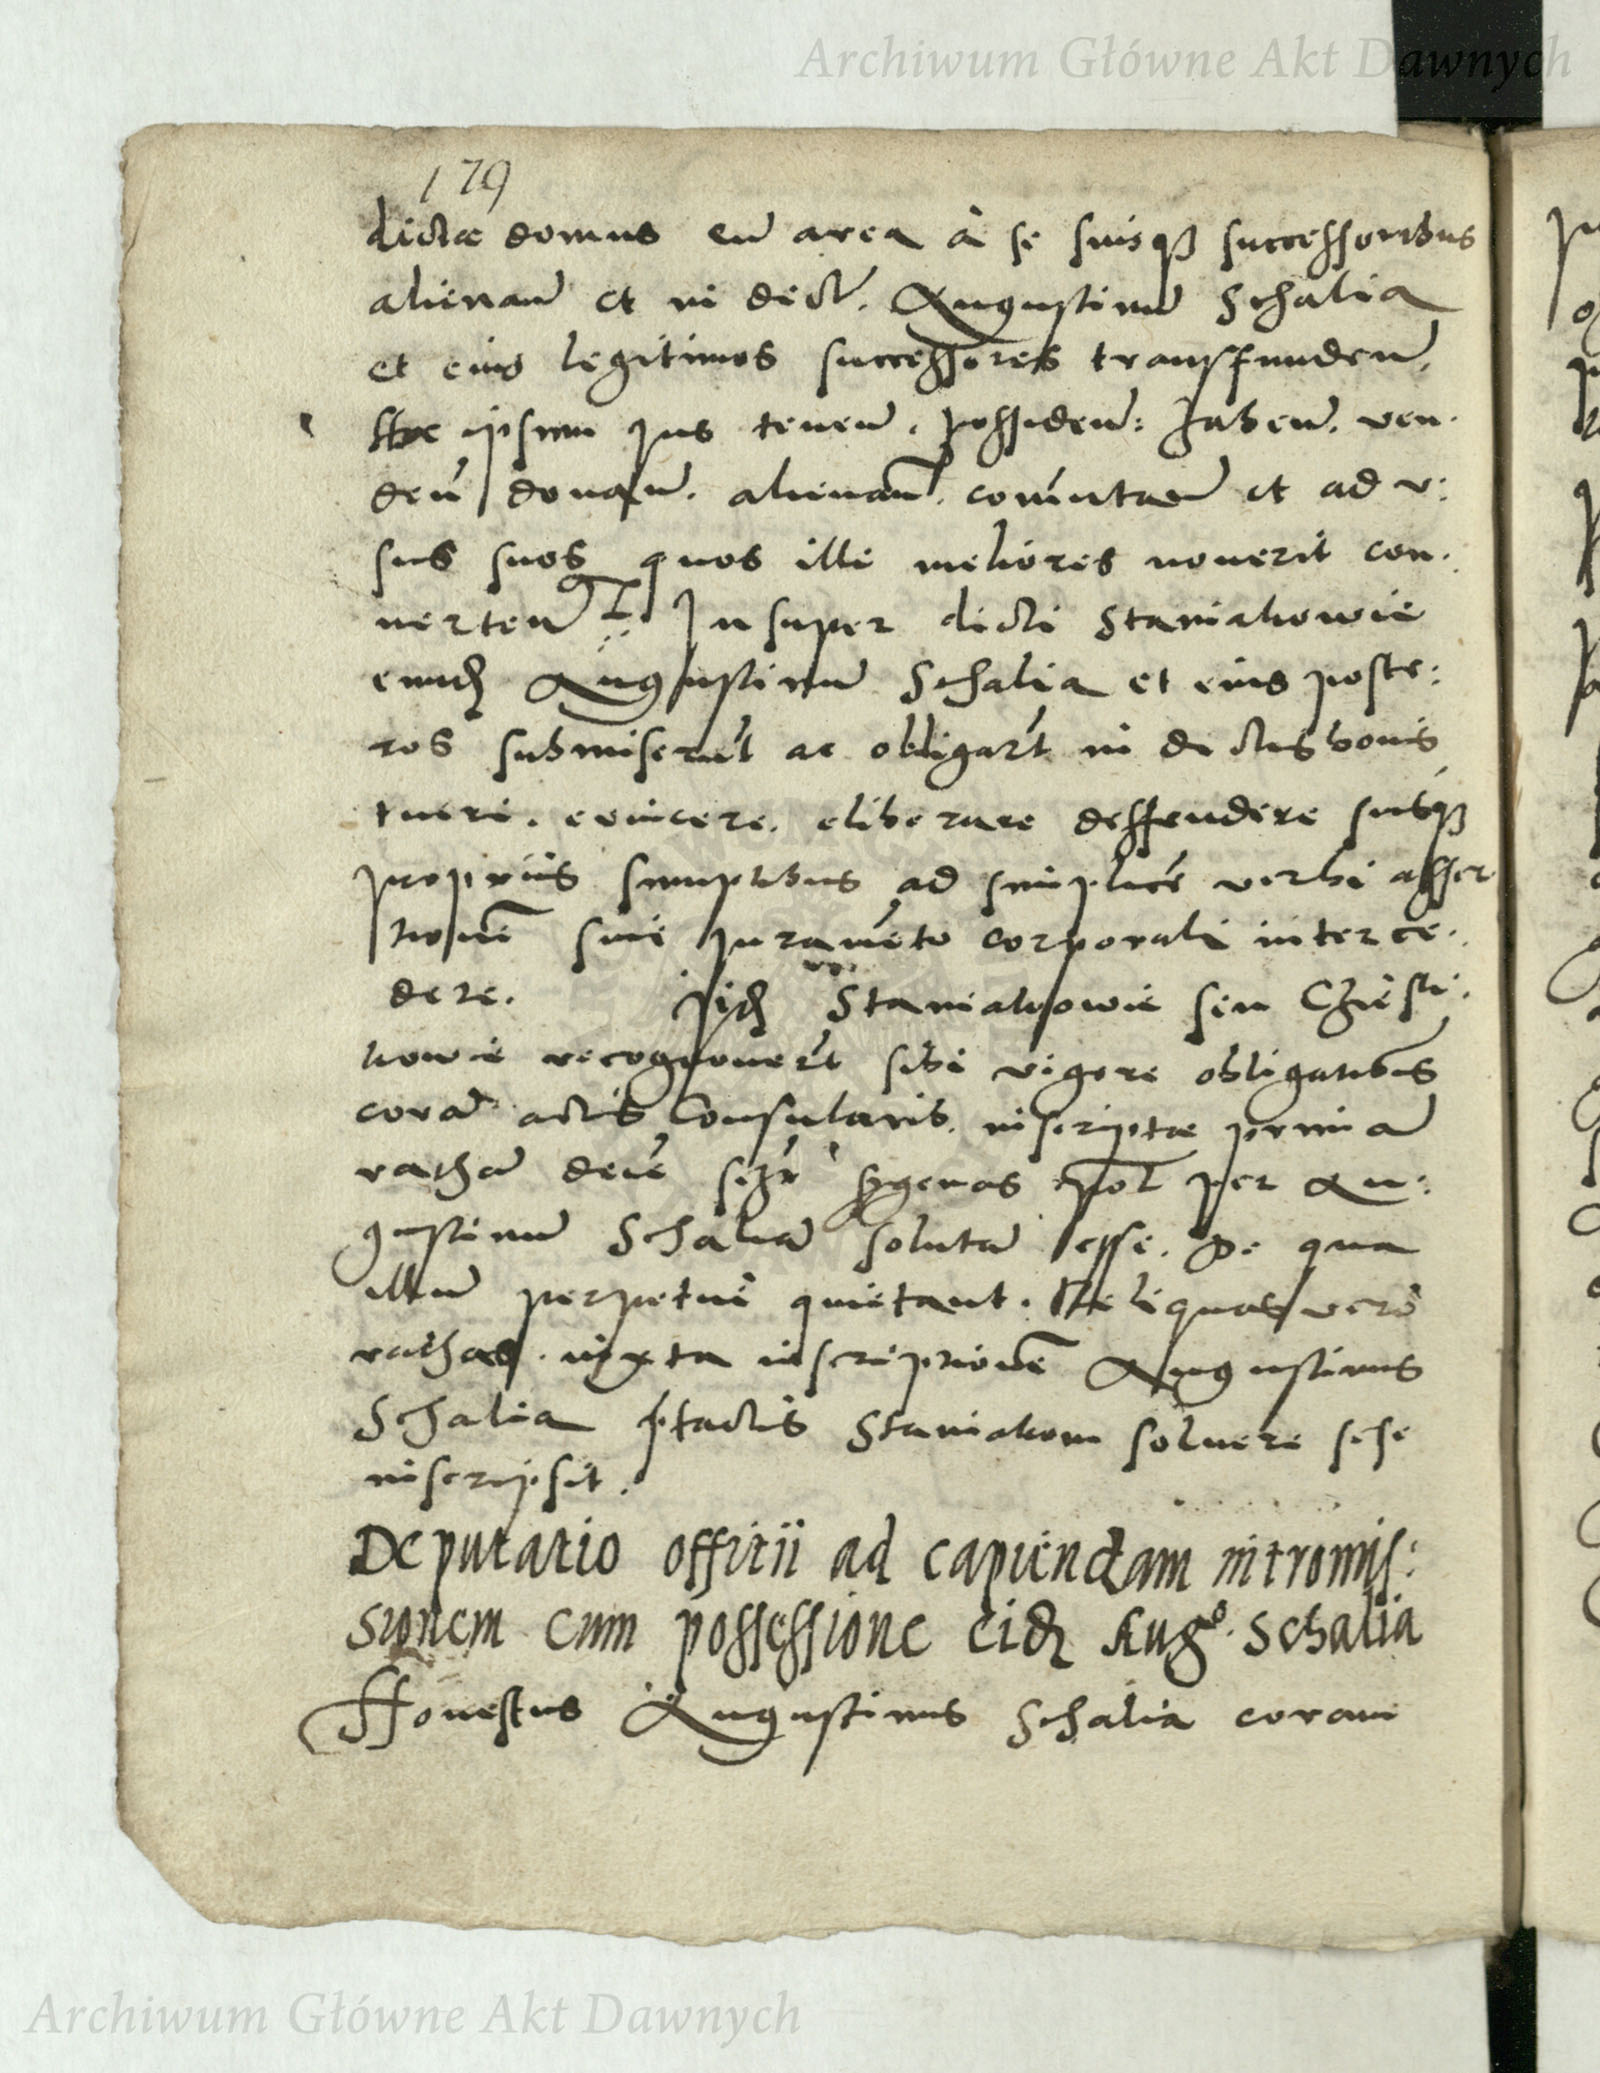 Archiwum Główne Akt Dawnych
179
dictæ domus cū area à se suisqȝ successoribus
alienan̄ et in dict̄. Augustinū Schalia
et eius legitimos successores transfunden̄.
Hoc ipsum jus tenen̄. possiden̄: haben̄. ven.
den̄ donan̄. alienan̄. com̄utan̄ et ad v:
sus suos quos ille meliores noverit con.
verten̄. Insuper dicti Staniakowie
eundȝ Augustinū Schalia et eius poste:
ros submiserūt ac obligarūt in dictis bonis
tueri. evincere. eliberare deffendere suisqȝ
propriis sumptibus ad simplicē verbi asser
tionē sine juramēto corporali interce.
dere. Jidȝ Staniakowie seu
kowie recognoverūt sibi vigore obligationis
corā actis Consularib. inscriptæ primā
rathā decē sexagenas pol per Au:
gustinū Schaliā solutā esse. De qua
illum perpetue quietant. Reliquas vero
rathas. iuxta inscriptionē Augustinus
Schalia ptactis Staniakom solvere sese
inscripsit.
Deputatio offitii ad capiendam intromis:
sionem cum possessione eidȝ Augº. Schalia
Honestus Augustinus Schalia coram
Archiwum Główne Akt Dawnych